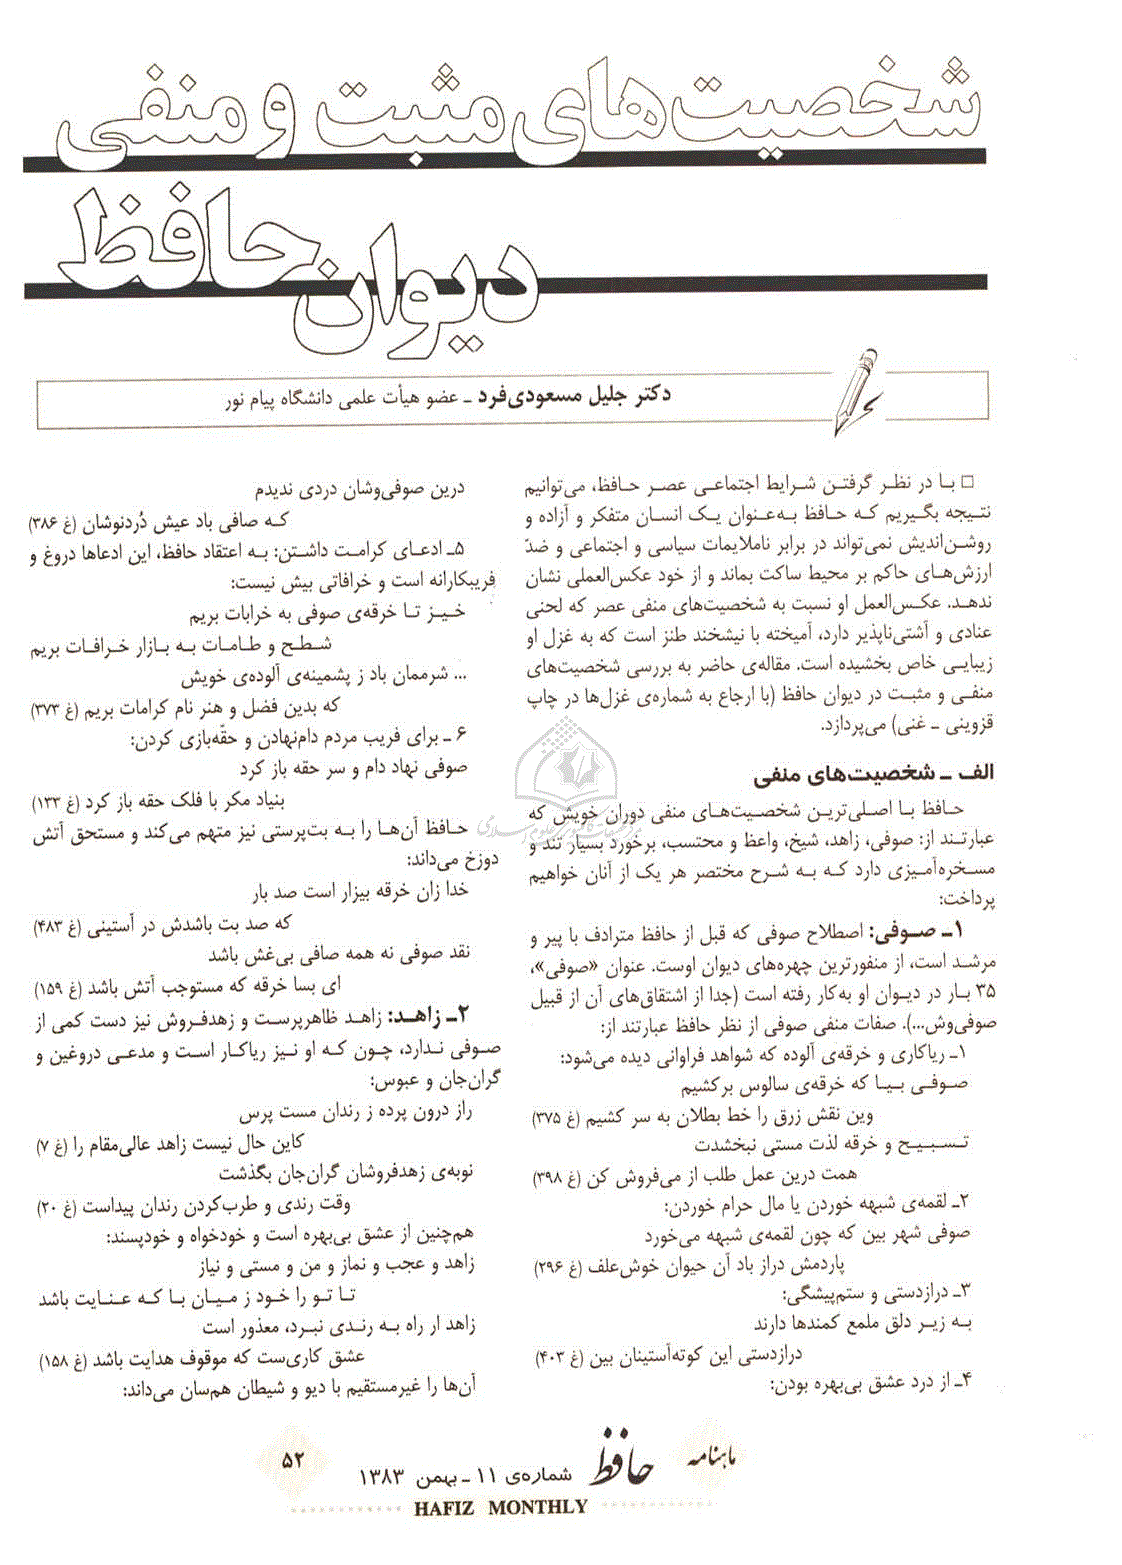 شخصیت‌های مثبت و منفی
دیوان حافظ
دکتر جلیل مسعودی‌فرد ـ عضو هیأت علمی دانشگاه پیام نور
□ بـا در نظـر گرفتـن شـرایط اجتماعـی عصـر حـافظ، می‌توانیم
نتیجه بگیریم که حـافظ به‌عنوان یـک انسان متفکر و آزاده و
روشن‌اندیش نمی‌تواند در برابر ناملایمات سیاسی و اجتماعی و ضدّ
ارزش‌هـای حاکم بر محیط ساکت بماند و از خود عکس‌العملی نشان
ندهـد. عکس‌العمل او نسبت به شخصیت‌های منفی عصر که لحنی
عنادی و آشتی‌ناپذیر دارد، آمیخته با نیشخند طنز است که به غزل او
زیبایـی خاص بخشیده است. مقاله‌ی حاضر به بررسی شخصیت‌های
منفـی و مثبـت در دیوان حافظ (با ارجاع به شماره‌ی غزل‌ها در چاپ
قزوینی ـ غنی) می‌پردازد.
الف ـ شخصیت‌های منفی
حـافظ بـا اصلی‌تریـن شخصیت‌هـای منفی دوران خویش که
عبارتـند از: صوفی، زاهد، شیخ، واعظ و محتسب، برخورد بسیار تند و
مسـخره‌آمیـزی دارد کـه بـه شـرح مختصـر هر یـک از آنان خواهیم
پرداخت:
۱ـ صـوفی: اصطلاح صوفی که قبل از حافظ مترادف با پیر و
مرشد است، از منفورترین چهره‌های دیوان اوست. عنوان «صوفی»،
۳۵ بـار در دیـوان او به‌کار رفته است (جدا از اشتقاق‌های آن از قبیل
صوفی‌وش...). صفات منفی صوفی از نظر حافظ عبارتند از:
۱ـ ریاکاری و خرقه‌ی آلوده که شواهد فراوانی دیده می‌شود:
صـوفـی بـیـا که خرقه‌ی سالوس برکشیم
وین نقش زرق را خط بطلان به سر کشیم (غ ۳۷۵)
تـسـبـیـح و خرقه لذت مستی نبخشدت
همت درین عمل طلب از می‌فروش کن (غ ۳۹۸)
۲ـ لقمه‌ی شبهه خوردن یا مال حرام خوردن:
صوفی شهر بین که چون لقمه‌ی شبهه می‌خورد
پاردمش دراز باد آن حیوان خوش‌علف (غ ۲۹۶)
۳ـ درازدستی و ستم‌پیشگی:
بـه زیـر دلق ملمع کمندها دارند
درازدستی این کوته‌آستینان بین (غ ۴۰۳)
۴ـ از درد عشق بی‌بهره بودن:
درین صوفی‌وشان دردی ندیدم
کـه صافی باد عیش دُردنوشان (غ ۳۸۶)
۵ـ ادعـای کرامت داشـتن: بـه اعتقاد حافظ، این ادعاها دروغ و
فریبکارانه است و خرافاتی بیش نیست:
خـیـز تـا خرقه‌ی صوفی به خرابات بریم
شـطـح و طـامـات بـه بـازار خـرافـات بریم
... شرممان باد ز پشمینه‌ی آلوده‌ی خویش
که بدین فضل و هنر نام کرامات بریم (غ ۳۷۳)
۶ ـ برای فریب مردم دام‌نهادن و حقّه‌بازی کردن:
صوفی نهاد دام و سر حقه باز کرد
بنیاد مکر با فلک حقه باز کرد (غ ۱۳۳)
حـافظ آن‌هـا را بـه بت‌پرستی نیز متهم می‌کند و مستحق آتش
دوزخ می‌داند:
خدا زان خرقه بیزار است صد بار
که صد بت باشدش در آستینی (غ ۴۸۳)
نقد صوفی نه همه صافی بی‌غش باشد
ای بسا خرقه که مستوجب آتش باشد (غ ۱۵۹)
۲ـ زاهـد: زاهـد ظاهرپرست و زهدفـروش نیز دست کمی از
صـوفـی نـدارد، چـون کـه او نـیز ریاکـار اسـت و مدعـی دروغین و
گران‌جان و عبوس:
راز درون پرده ز رندان مست پرس
کاین حال نیست زاهد عالی‌مقام را (غ ۷)
نوبه‌ی زهدفروشان گران‌جان بگذشت
وقت رندی و طرب‌کردن رندان پیداست (غ ۲۰)
هم‌چنین از عشق بی‌بهره است و خودخواه و خودپسند:
زاهد و عجب و نماز و من و مستی و نیاز
تـا تـو را خـود ز مـیـان بـا کـه عـنـایت باشد
زاهد ار راه بـه رنـدی نبـرد، معذور است
عشق کاری‌ست که موقوف هدایت باشد (غ ۱۵۸)
آن‌ها را غیرمستقیم با دیو و شیطان هم‌سان می‌داند:
ماهنامه حافظ شماره‌ی ۱۱ ـ بهمن ۱۳۸۳ ۵۲
HAFIZ MONTHLY